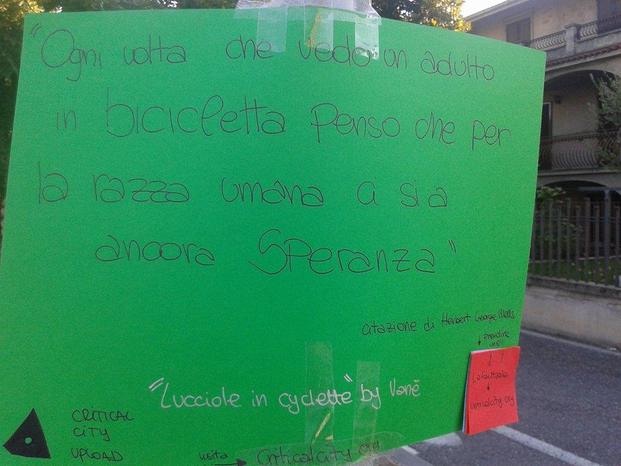 "Ogni volta che vedo un adulto
in bicicletta penso che per
la razza umana ci sia
ancora SPeranza"
citazione di Herbert George Wells
"Lucciole in cyclette" by Vanè
CRITICAL
CITY
UPLOAD
visita → criticalcity.org
↓ prendine
criticalcity.org